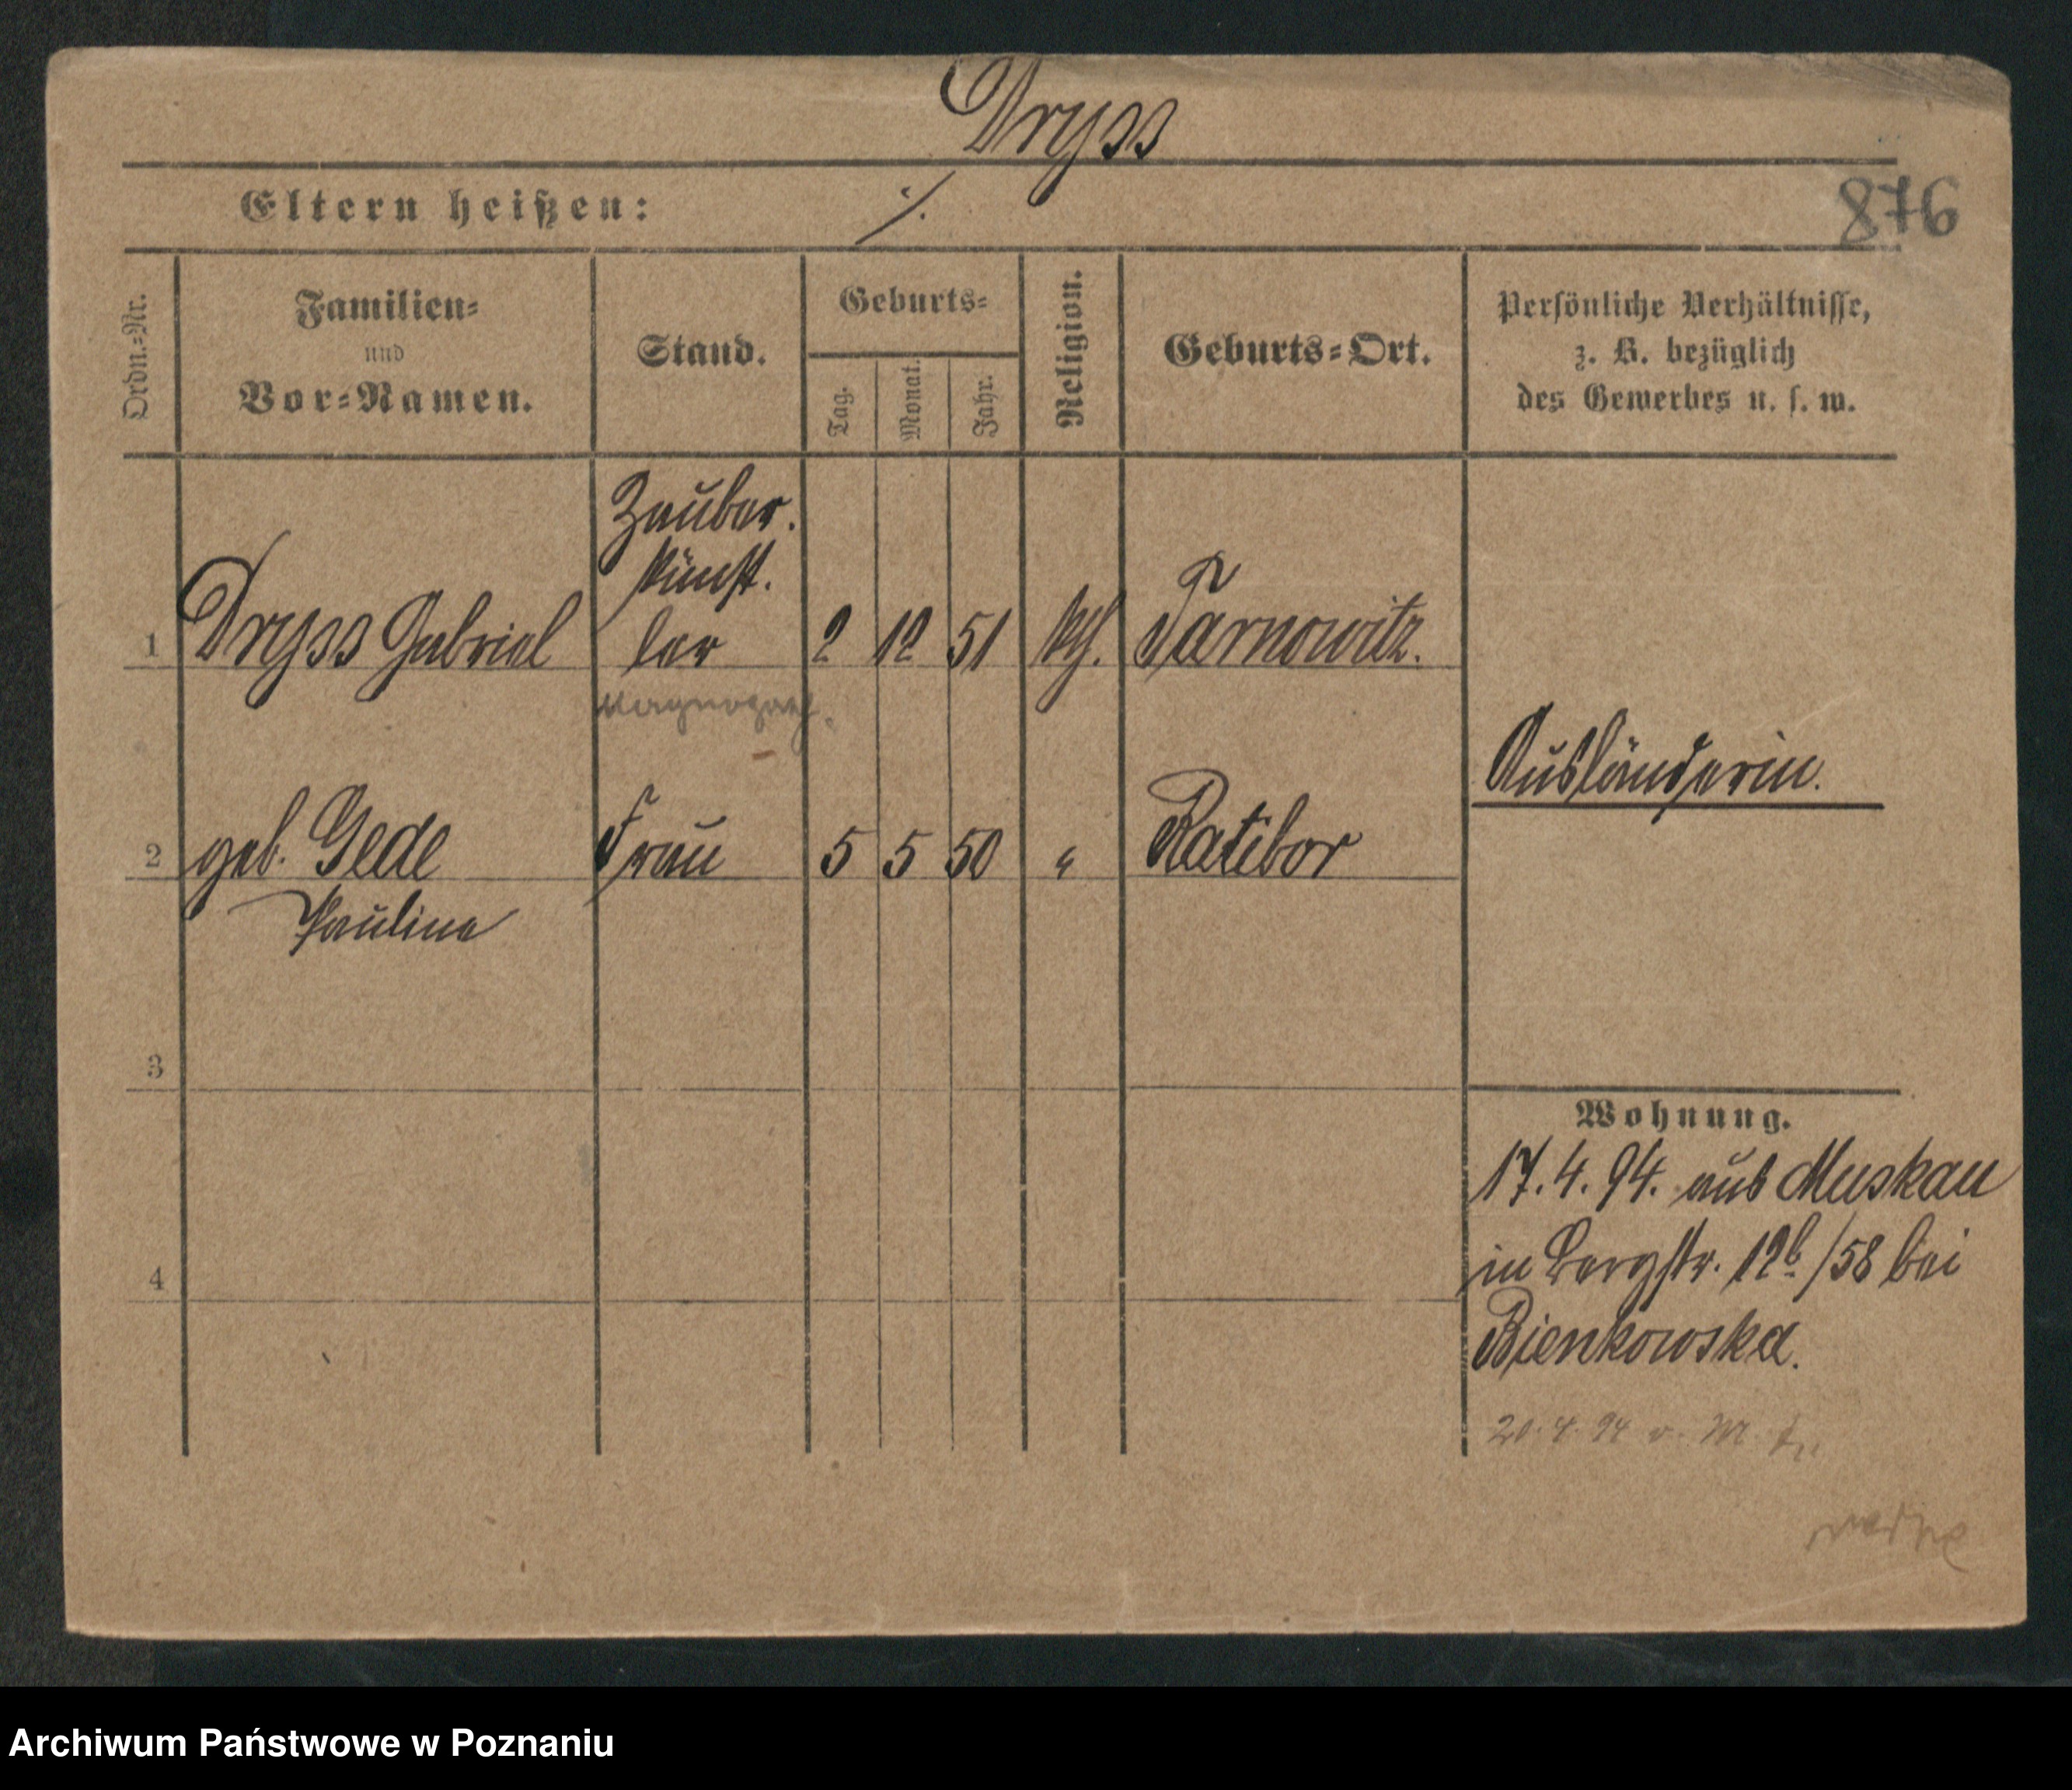 Dryss
Eltern heißen: ·/.
876
Ordn.-Nr.
Familien-
und
Vor-Namen.
Stand.
Geburts-
Tag.
Monat.
Jahr.
Religion.
Geburts-Ort.
Persönliche Verhältnisse,
z. B. bezüglich
des Gewerbes u. s. w.
Zauber.
künst.
1 Dryss Gabriel ler 2 12 51 kth. Tarnowitz.
Ausländerin.
2 geb. Gede Frau 5 5 50 " Ratibor
Pauline
3
Wohnung.
17.4.94. aus Muskau
4
in Bergstr. 12b/58 bei
Bienkowska.
20.4.94 v. M
Archiwum Państwowe w Poznaniu